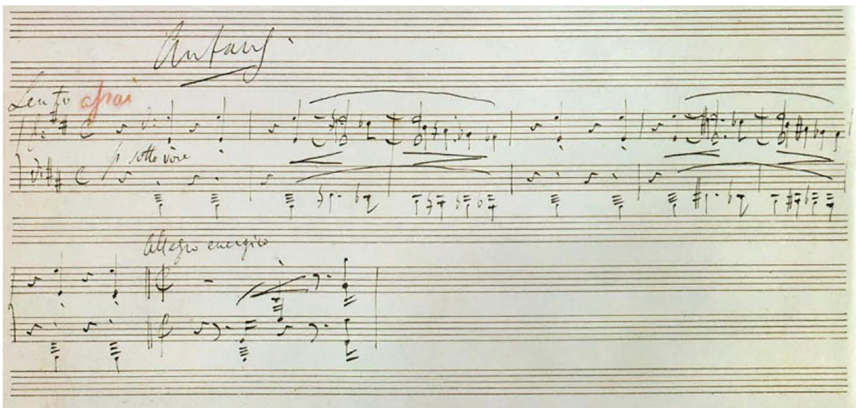 Anfang.
Lento assai
p sotto voce
Allegro energico